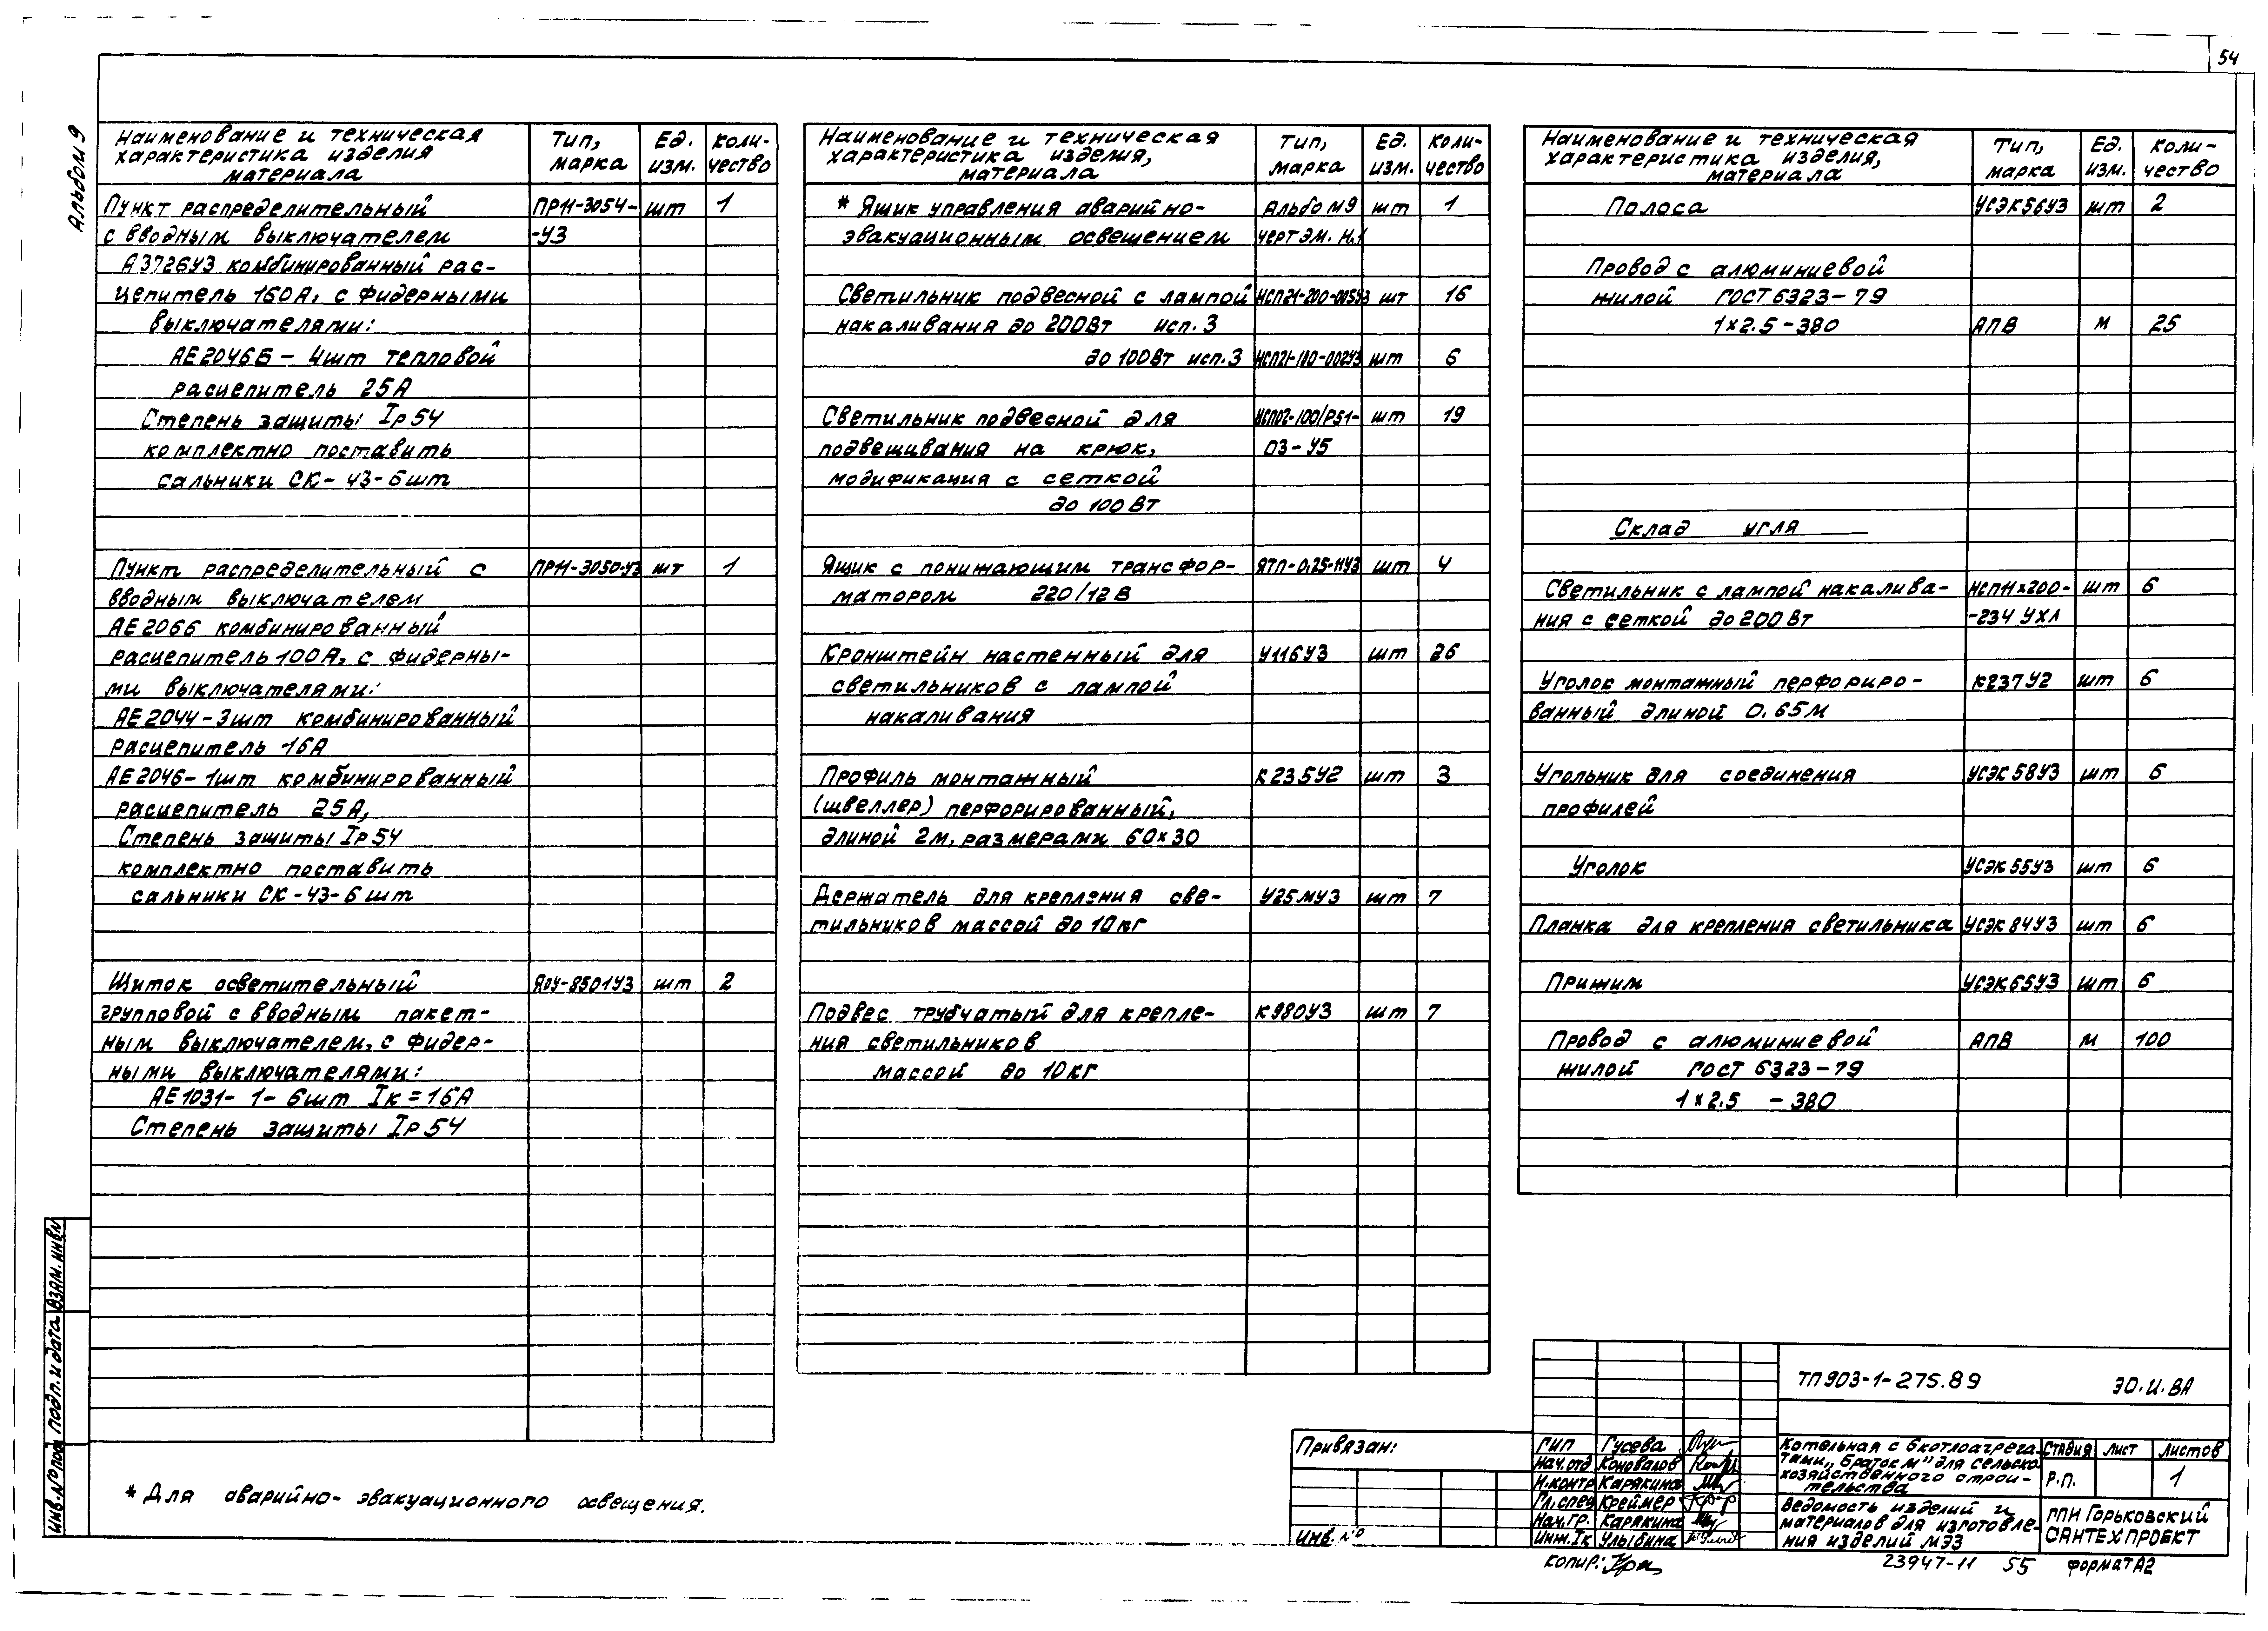 54
Альбом 9
Наименование и техническая характеристика изделия материала | Тип, марка | Ед. изм. | Коли-чество
Пункт распределительный | ПР11-3054- | шт | 1
с вводным выключателем | -У3
А3726У3 комбинированный рас-
цепитель 160А, с фидерными
выключателями:
АЕ2046Б - 4шт тепловой
расцепитель 25А
Степень защиты Iр54
комплектно поставить
сальники СК-43-6шт
Пункт распределительный с | ПР11-3050-У3 | шт | 1
вводным выключателем
АЕ2066 комбинированный
расцепитель 100А, с фидерны-
ми выключателями:
АЕ2044-3шт комбинированный
расцепитель 16А
АЕ2046-1шт комбинированный
расцепитель 25А,
Степень защиты Iр54
комплектно поставить
сальники СК-43-6шт
Щиток осветительный | ЯОУ-8501У3 | шт | 2
групповой с вводным пакет-
ным выключателем, с фидер-
ными выключателями:
АЕ1031-1-6шт Iк=16А
Степень защиты Iр54
* Для аварийно-эвакуационного освещения.
Наименование и техническая характеристика изделия, материала | Тип, марка | Ед. изм. | Коли-чество
* Ящик управления аварийно- | Альбом 9 | шт | 1
эвакуационным освещением | черт ЭМ. Н.1
Светильник подвесной с лампой | НСП21-200-005У3 | шт | 16
накаливания до 200Вт исп.3
до 100Вт исп.3 | НСП21-100-002У3 | шт | 6
Светильник подвесной для | НСП02-100/Р51- | шт | 19
подвешивания на крюк, | 03-У5
модификация с сеткой
до 100 Вт
Ящик с понижающим трансфор- | ЯТП-0,25-11У3 | шт | 4
матором 220/12В
Кронштейн настенный для | У116У3 | шт | 26
светильников с лампой
накаливания
Профиль монтажный | К235У2 | шт | 3
(швеллер) перфорированный,
длиной 2м, размерами 60х30
Держатель для крепления све- | У25МУ3 | шт | 7
тильников массой до 10кг
Подвес трубчатый для крепле- | К980У3 | шт | 7
ния светильников
массой до 10кг
Наименование и техническая характеристика изделия, материала | Тип, марка | Ед. изм. | Коли-чество
Полоса | УСЭК56У3 | шт | 2
Провод с алюминиевой
жилой ГОСТ 6323-79
1х2.5-380 | АПВ | м | 25
Склад угля
Светильник с лампой накалива- | НСП11х200- | шт | 6
ния с сеткой до 200 Вт | -234 УХЛ
Уголок монтажный перфориро- | К237У2 | шт | 6
ванный длиной 0.65м
Угольник для соединения | УСЭК58У3 | шт | 6
профилей
Уголок | УСЭК55У3 | шт | 6
Планка для крепления светильника | УСЭК84У3 | шт | 6
Прижим | УСЭК65У3 | шт | 6
Провод с алюминиевой | АПВ | м | 100
жилой ГОСТ 6323-79
1х2.5 -380
ТП903-1-275.89 ЭО.И.ВА
Привязан:
Инв.№
ГИП Гусева
Нач.отд Коновалов
Н.контр Карякина
Гл.спец Креймер
Нач.гр. Карякина
Инж.Iк Улыбина
Котельная с 6 котлоагрега-
тами „Братск М" для сельско-
хозяйственного строи-
тельства
Стадия | Лист | Листов
Р.П. | | 1
Ведомость изделий и
материалов для изготовле-
ния изделий МЭЗ
ГПИ Горьковский
САНТЕХПРОЕКТ
Копир:
23947-11 55 формат А2
Инв.№подл
Подп. и дата
Взам.инв№